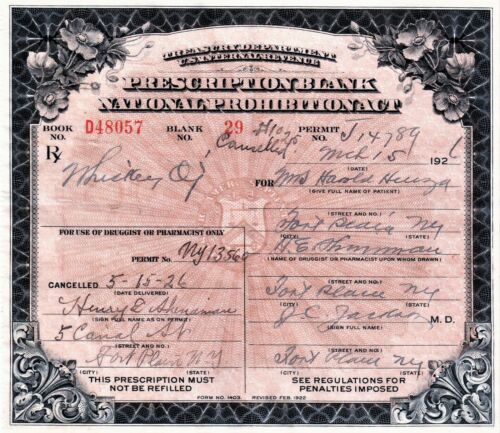 TREASURY DEPARTMENT
U.S. INTERNAL REVENUE
PRESCRIPTION BLANK
NATIONAL PROHIBITION ACT
BOOK NO. D48057 BLANK NO. 29 PERMIT NO. J14789
Cancelled
Mch 15 192
Rx
Whiskey
FOR Mrs Harold
(GIVE FULL NAME OF PATIENT)
(STREET AND NO.)
Fort NY
FOR USE OF DRUGGIST OR PHARMACIST ONLY
(CITY) (STATE)
PERMIT NO. NY13560
(NAME OF DRUGGIST OR PHARMACIST UPON WHOM DRAWN)
CANCELLED 5-15-26
(DATE DELIVERED)
(STREET AND NO.)
Fort Plain NY
(CITY) (STATE)
Henry
(SIGN FULL NAME AS ON PERMIT)
J.C. M. D.
(SIGN FULL NAME)
5 Canal St
(STREET AND NO.)
(STREET AND NO.)
Fort Plain N.Y
Fort Plain NY
(CITY) (STATE)
(CITY) (STATE)
THIS PRESCRIPTION MUST
NOT BE REFILLED
SEE REGULATIONS FOR
PENALTIES IMPOSED
FORM NO. 1403. REVISED FEB. 1922